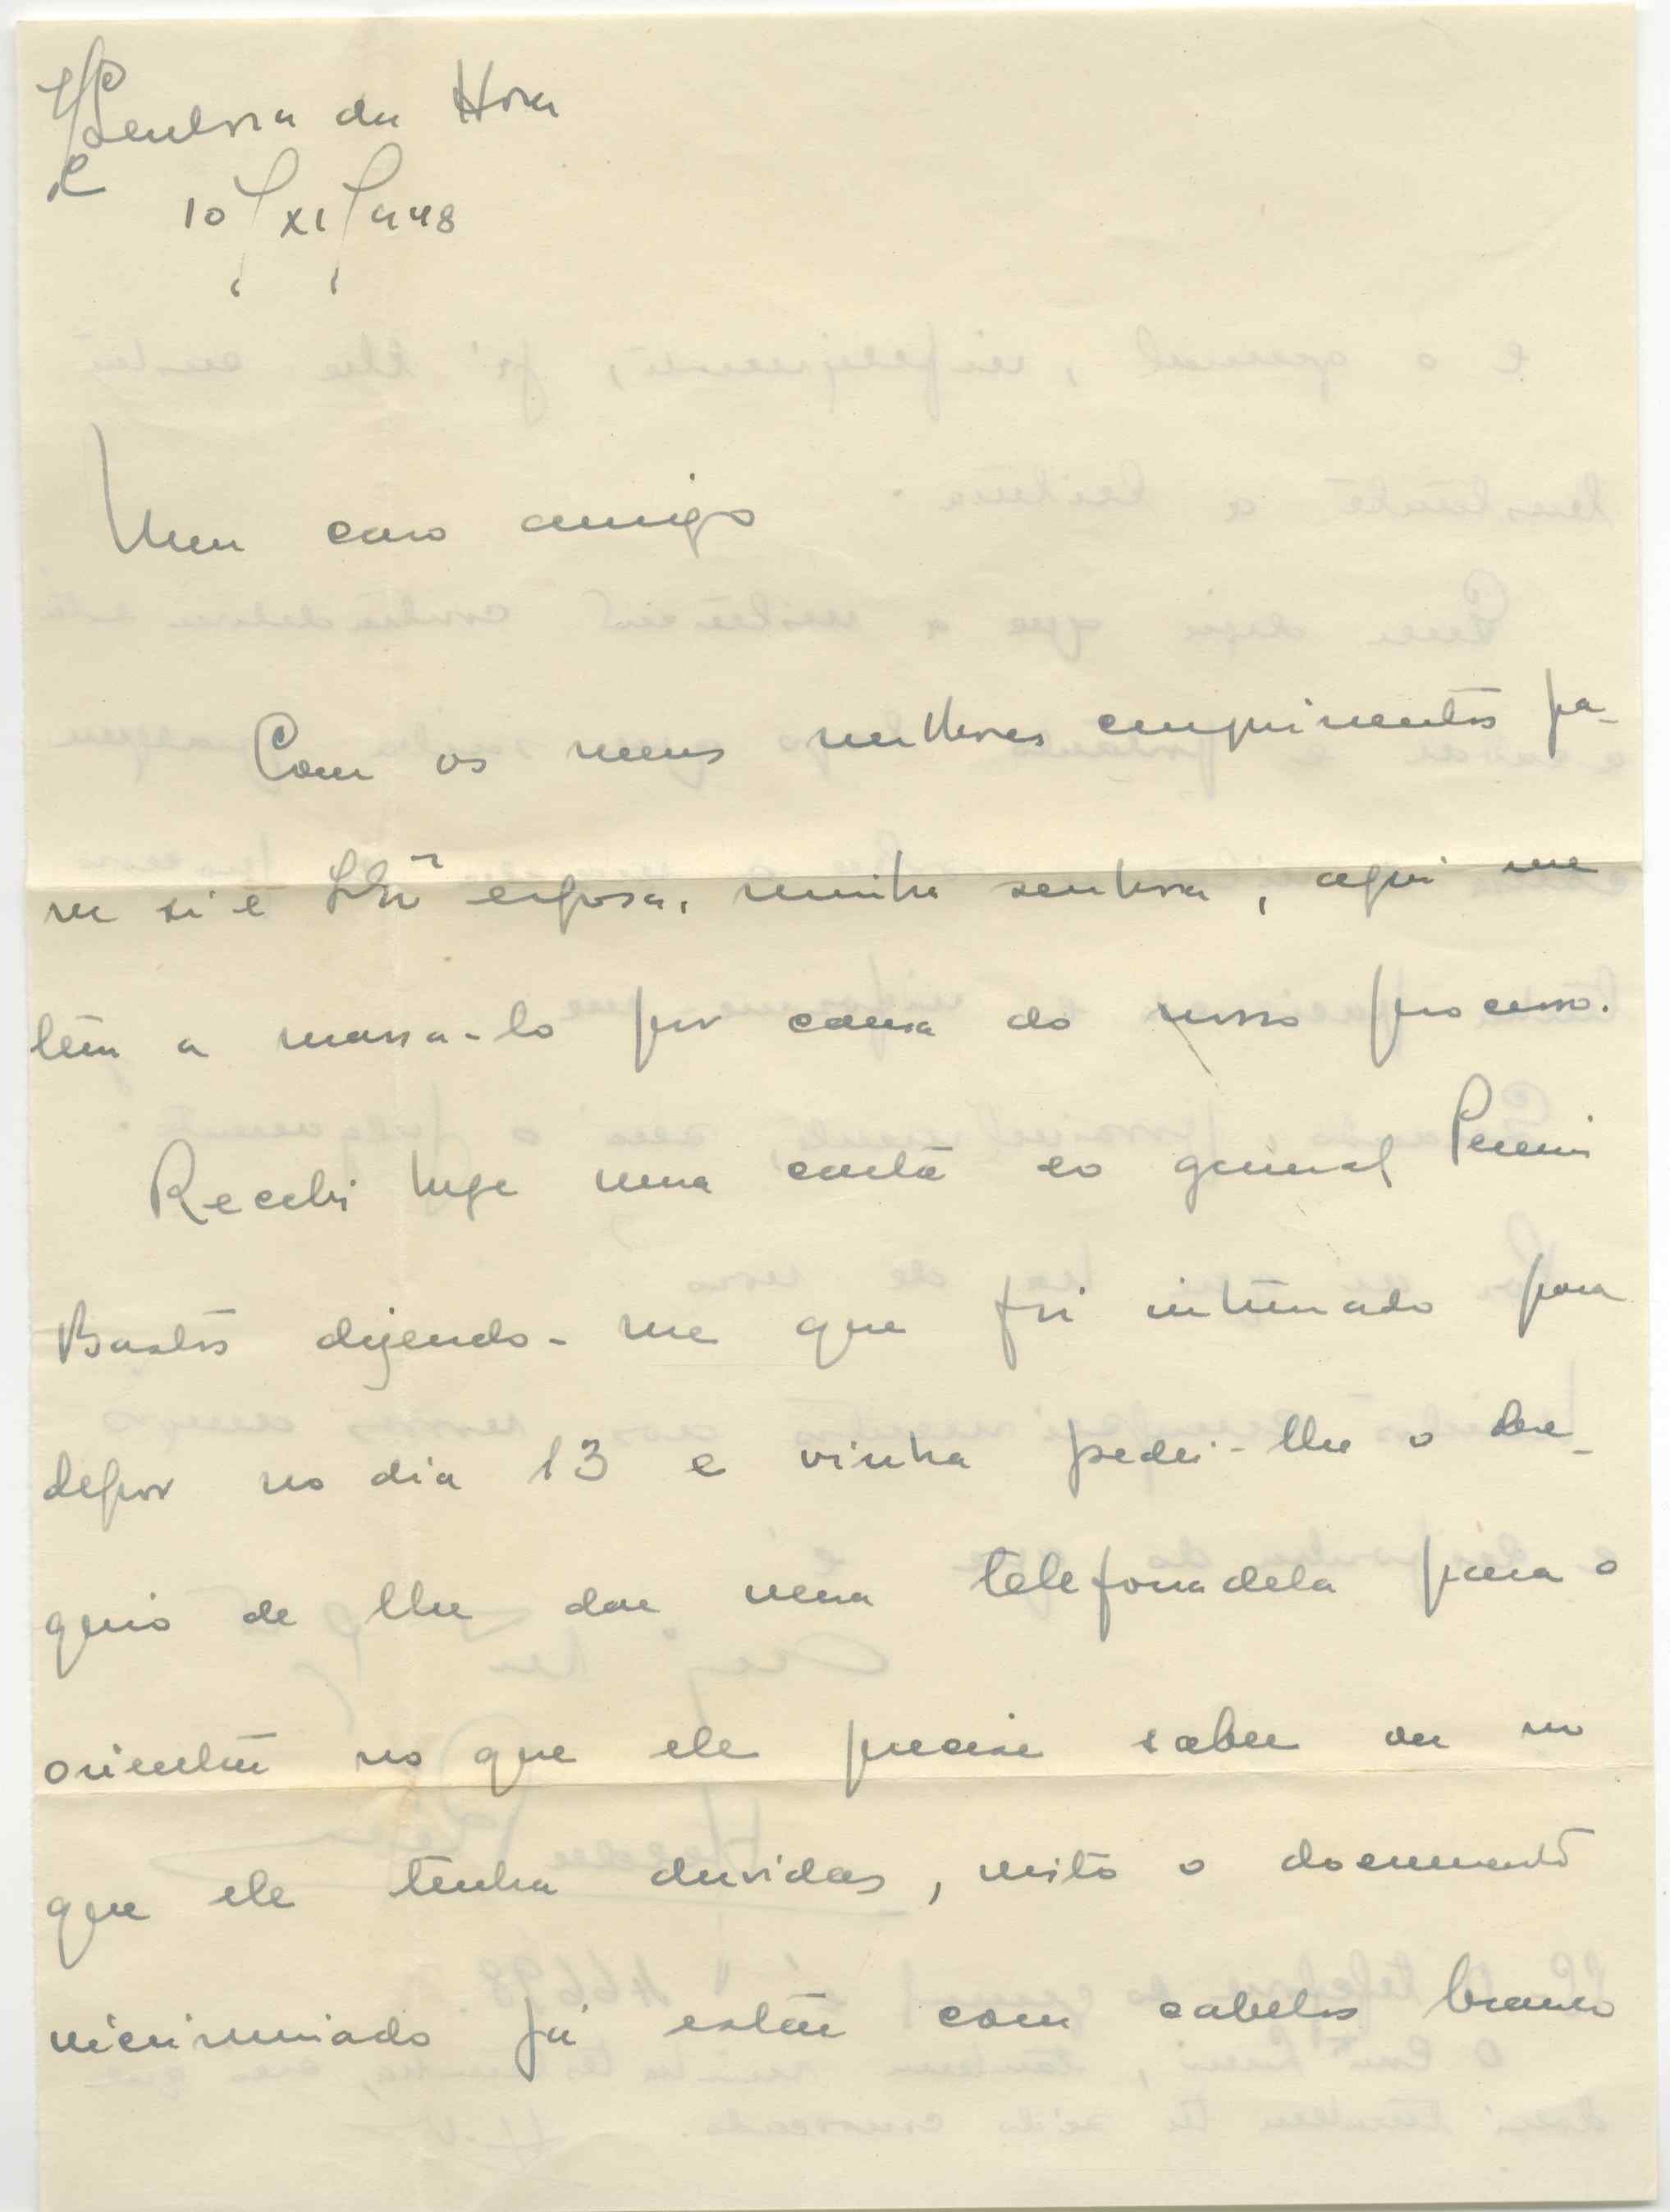 Senhora da Hora
10/XI/948
Meu caro amigo
Com os meus melhores cumprimentos pa-
ra si e esposa, minha senhora, aqui me
têm a massa-lo por causa do nosso processo.
Recebi hoje uma carta do general Pereira
Bastos dizendo-me que foi intimado para
depor no dia 13 e vinha pedir-lhe o obse-
quio de lhe dar uma telefonadela para o
orientar no que ele precise saber ou no
que ele tenha duvidas, visto o documento
incriminado já estar com cabelos brancos